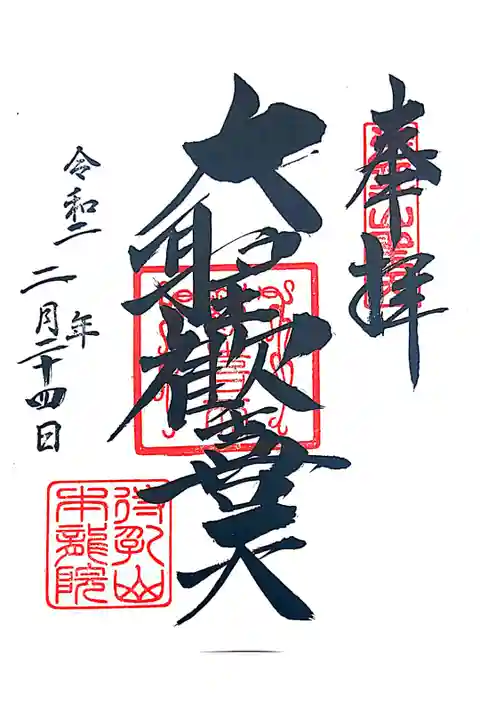 奉拝
大聖歓喜天
令和二年
二月二十四日
待乳山
本龍院